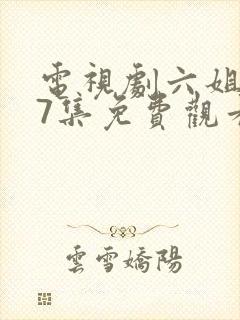 電視劇六姐
7集免費觀看
雲雪嬌陽